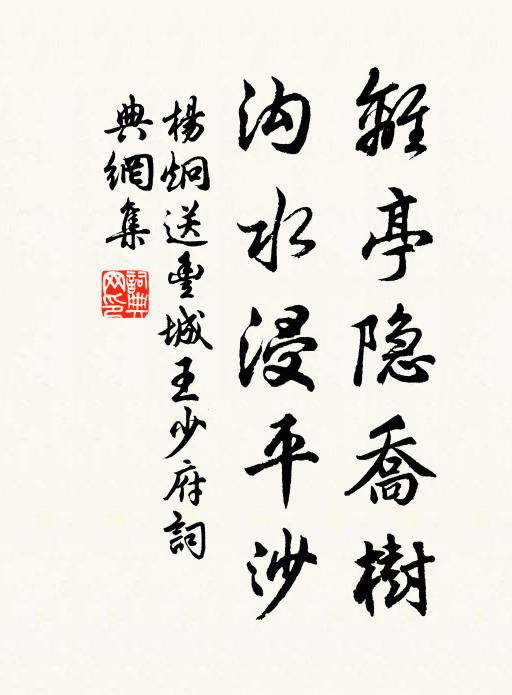 離亭隐喬樹
沟水浸平沙
楊炯送豐城王少府詞
典網集
詞典网印